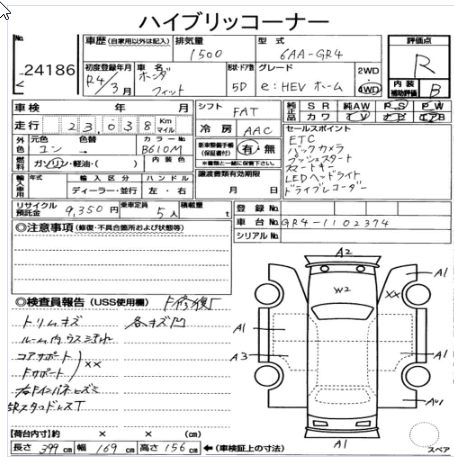 ハイブリッコーナー
No. 24186
車歴 (自家用以外は記入)
排気量 1500
型式 6AA-GR4
評価点 R
初度登録年月 R4/3月
車名 ホンダ フィット
形状・ドア数 5D
グレード e:HEV ホーム
2WD
4WD
内装補助評価 B
車検 年 月
シフト FAT
純正 SR 純AW PS PW
カワ TV ナビ エアB
走行 23,038 Km マイル
冷房 AAC
セールスポイント
ETC
バックカメラ
プッシュスタート
スマートキー
LEDヘッドライト
ドライブレコーダー
外色 元色 コン → 色替
カラーNo. B610M
新車整備手帳 (保証書付) 有・無
※書類と一緒に保管下さい。
燃料 ガソリン・軽油・( )
内装色
輸入車用 年式 輸入区分 ハンドル
ディーラー・並行 左・右
譲渡書類有効期限 月 日
リサイクル預託金 9,350円
乗車定員 5人
積載量 t
登録No.
車台No. GR4-1102374
シリアルNo.
◎注意事項 (修復・不具合箇所および状態等)
◎検査員報告 (USS使用欄)
トリムキズ 各キズ凹
コアサポート
Fサポート
XX
A2
W2
A1
XX
A1
A3
A1
A1
【荷台内寸】 × × (cm)
長さ 399 cm 幅 169 cm 高さ 156 cm ←(車検証上の寸法)
スペア